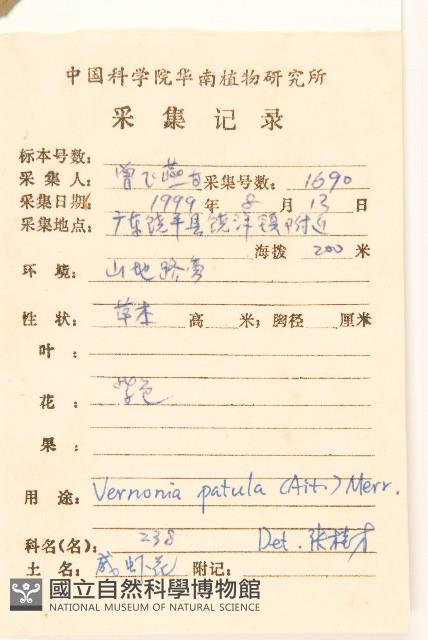 中国科学院华南植物研究所
采集记录
标本号数：
采集人：曾飞燕 采集号数：1690
采集日期 1999 年 8 月 13 日
采集地点：广东饶平县饶洋镇附近
海拨 200 米
环境：山地路旁
性状：草本 高 米；胸径 厘米
叶：
花：紫色
果：
用途：Vernonia patula (Ait.) Merr.
科名(名)：238 Det. 张桂才
土名：咸虾花 附记：
國立自然科學博物館
NATIONAL MUSEUM OF NATURAL SCIENCE